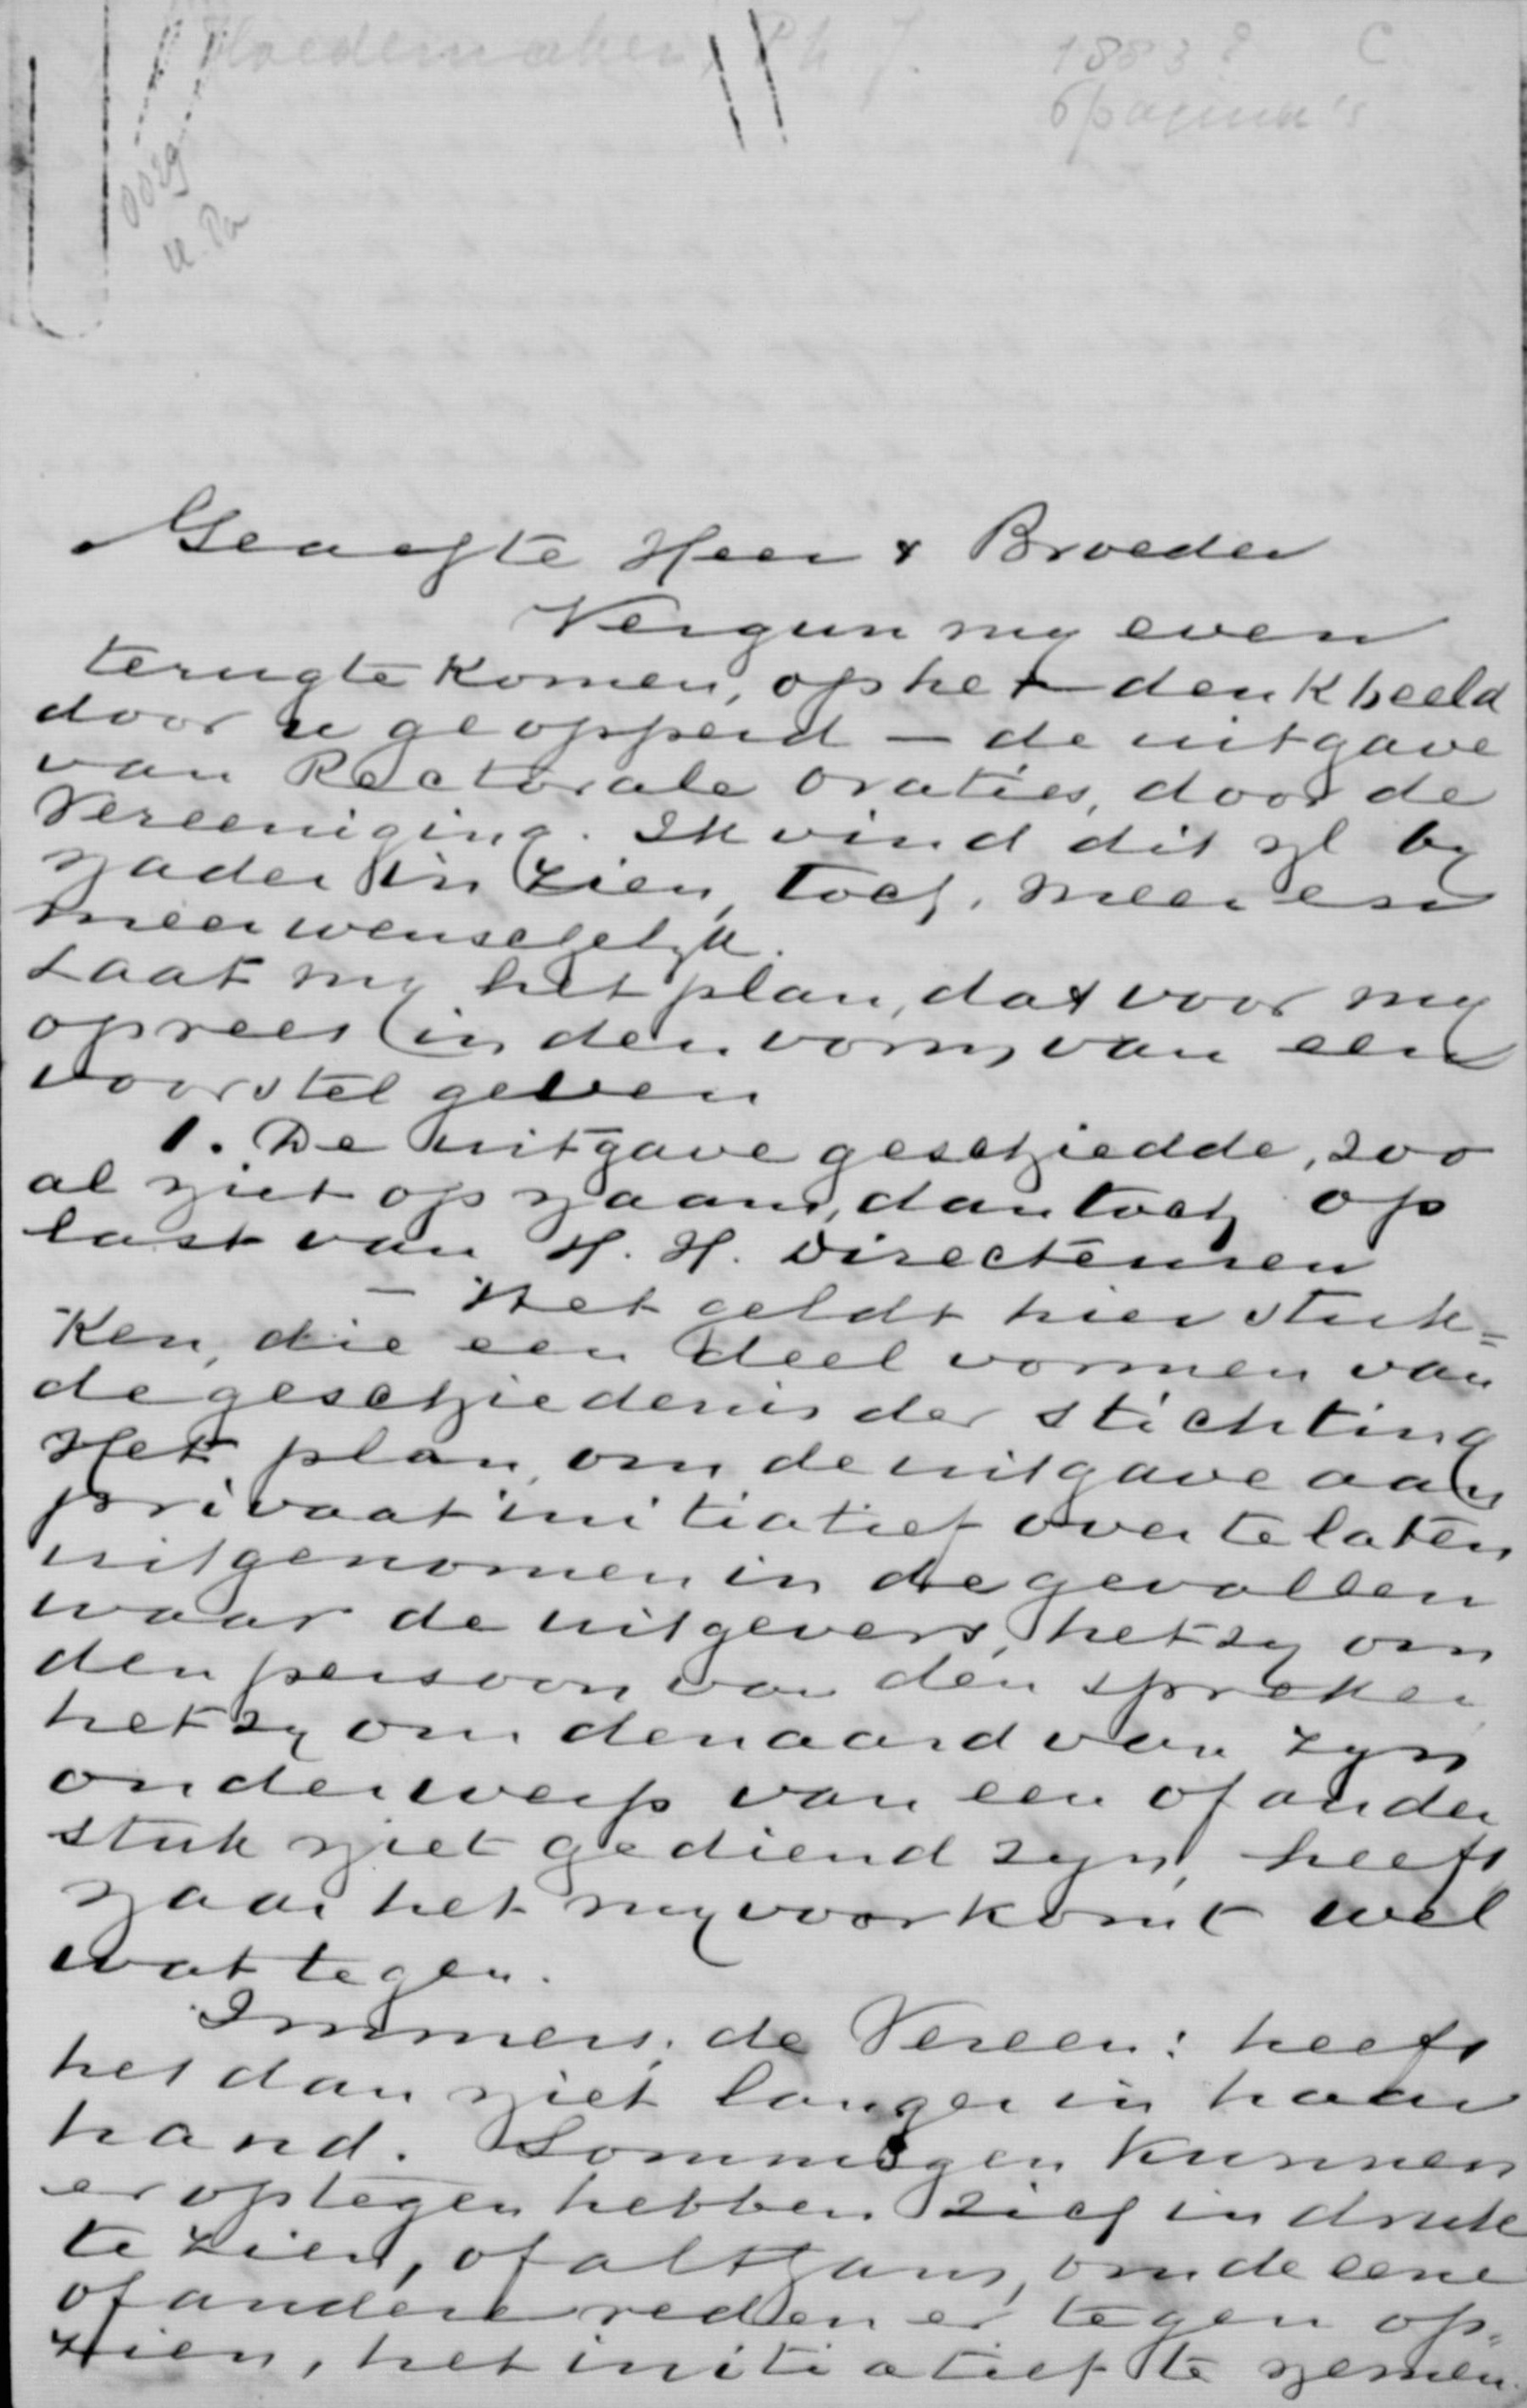 Hoedemaker, Ph J. 1883? C
6 pagina's
0029
Geachte Heer & Broeder
Vergun my even
terugtekomen, op het denkbeeld
door u geopperd — de uitgave
van Rectorale oraties, door de
Vereeniging. Ik vind dit zl by
nader inzien, toch, meer en
meer wenschelyk.
Laat my het plan, dat voor my
oprees in den vorm van een
voorstel geven
1. De uitgave geschiedde, zoo
al niet op naam, dan toch op
last van H. H. Directeuren
— Het geldt hier stuk=
ken, die een deel vormen van
de geschiedenis der stichting
Het plan, om de uitgave aan
privaat initiatief over te laten
uitgenomen in de gevallen
waar de uitgevers, hetzy om
den persoon van den spreker
hetzy om den aard van zyn
onderwerp van een of ander
stuk niet gediend zyn, heeft
naar het my voorkomt wel
wat tegen.
Immers, de Vereen: heeft
het dan niet langer in haar
hand. Sommigen kunnen
er op tegen hebben zich in druk
te zien, of althans, om de eene
of andere reden er tegen op=
zien, het initiatief te nemen